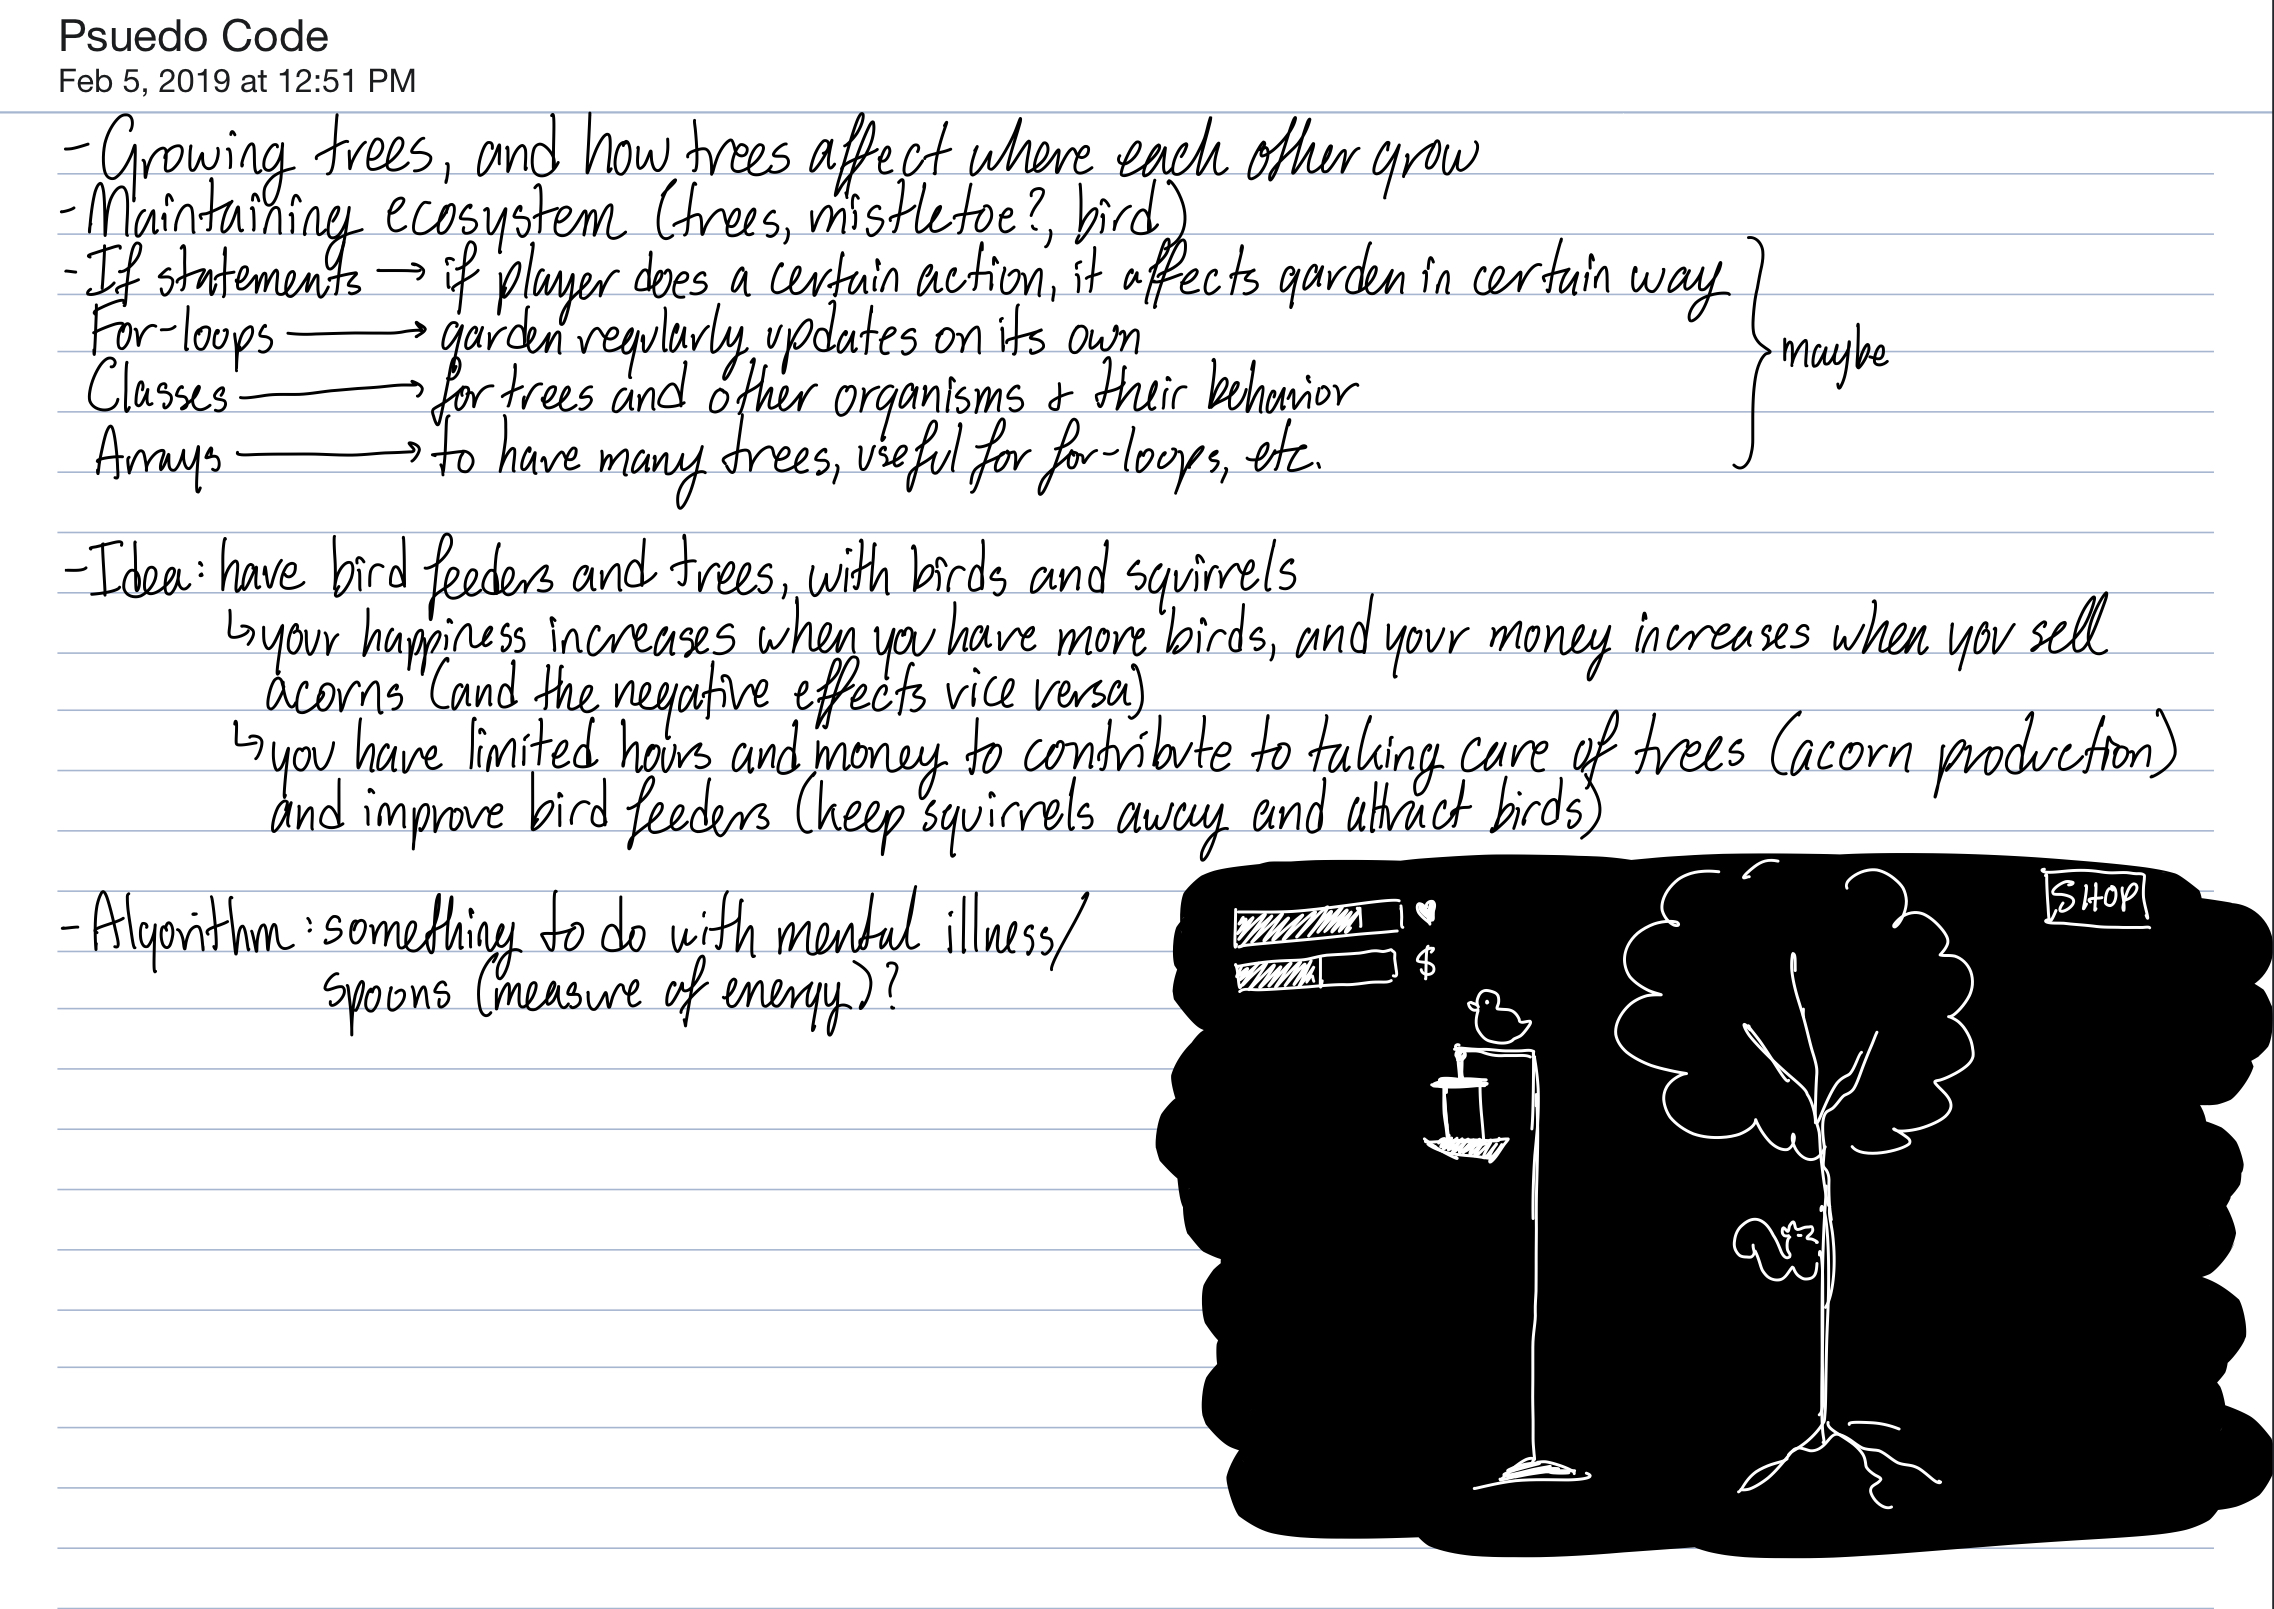 Psuedo Code
Feb 5, 2019 at 12:51 PM
- Growing trees, and how trees affect where each other grow
- Maintaining ecosystem (trees, mistletoe?, bird)
- If statements → if player does a certain action, it affects garden in certain way
For-loops → garden regularly updates on its own
maybe
Classes → for trees and other organisms + their behavior
Arrays → to have many trees, useful for for-loops, etc.
- Idea: have bird feeders and trees, with birds and squirrels
↳ your happiness increases when you have more birds, and your money increases when you sell
acorns (and the negative effects vice versa)
↳ you have limited hours and money to contribute to taking care of trees (acorn production)
and improve bird feeders (keep squirrels away and attract birds)
- Algorithm: something to do with mental illness/
spoons (measure of energy)?
SHOP
♥
$